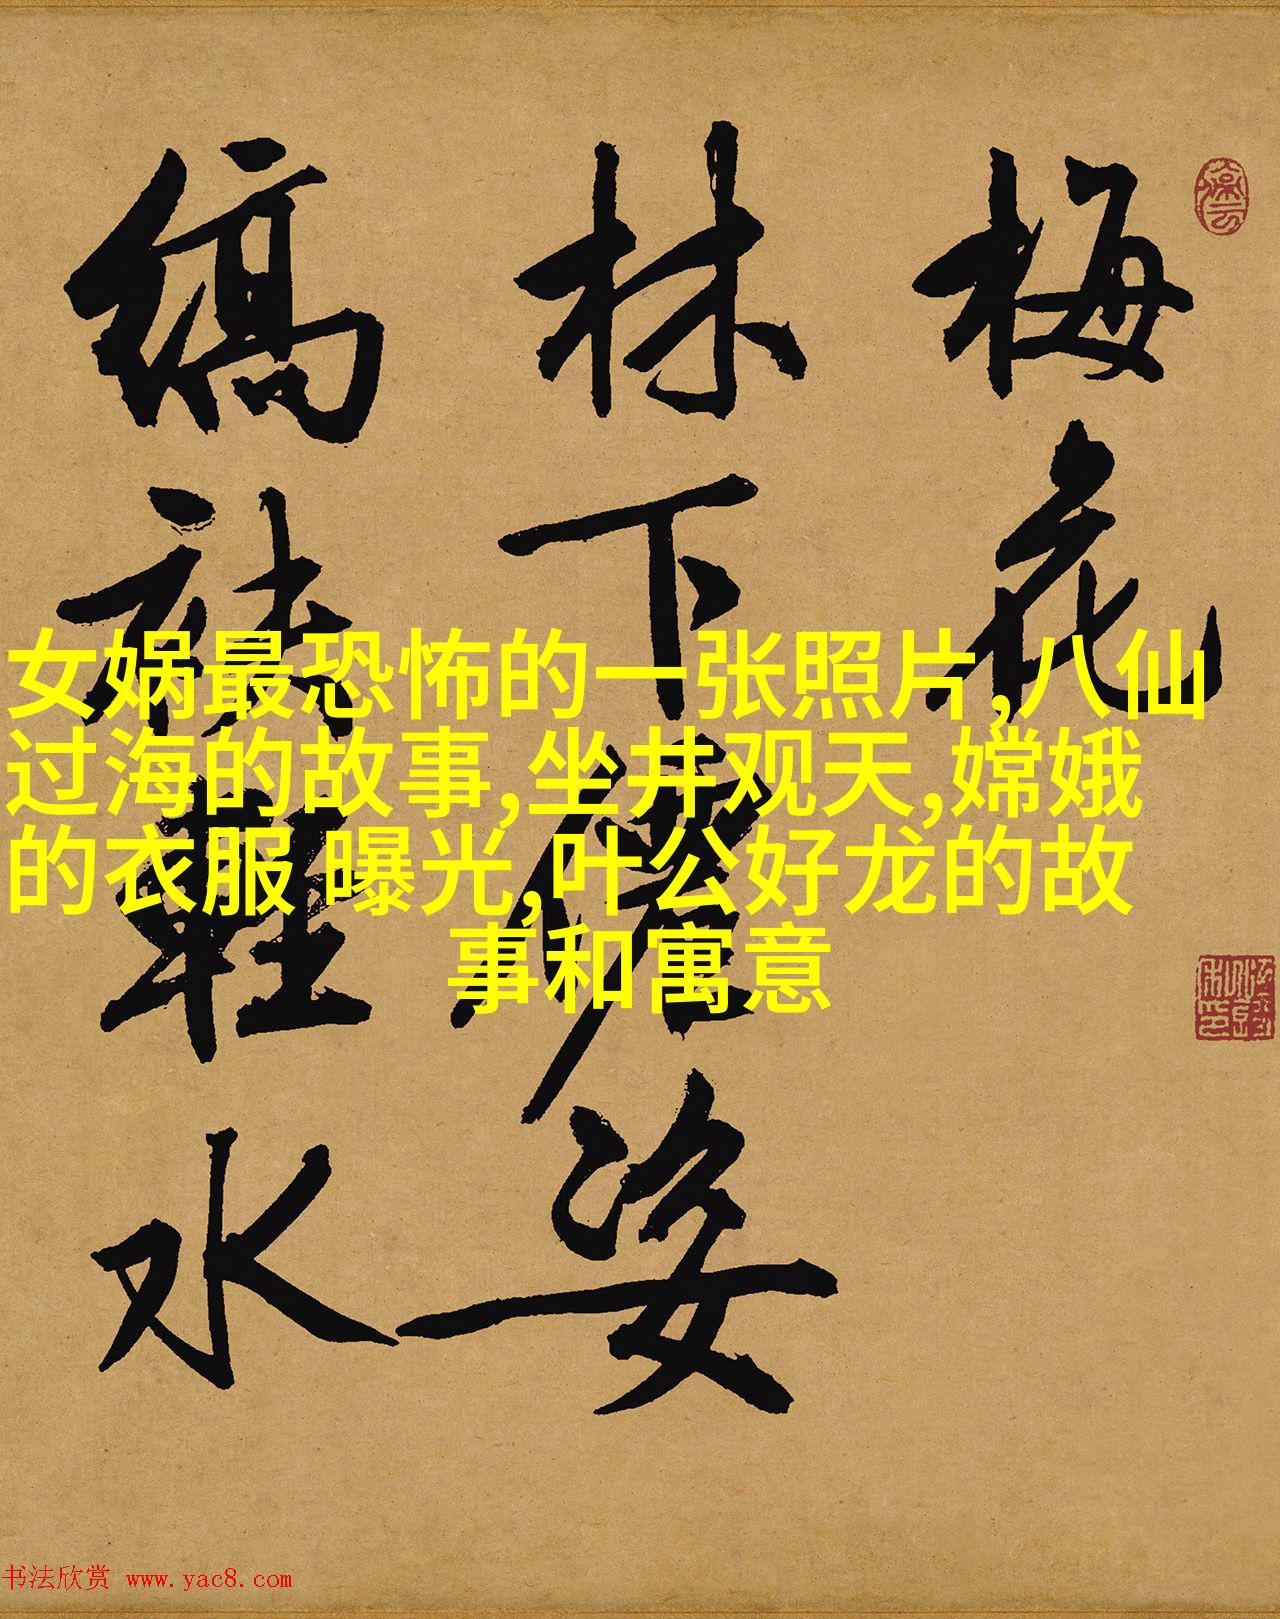 梅花
林下僊姿
縞袂輕水
女娲最恐怖的一张照片,八仙
过海的故事,坐井观天,嫦娥
的衣服 曝光,叶公好龙的故
事和寓意
书法欣赏 www.yac8.com